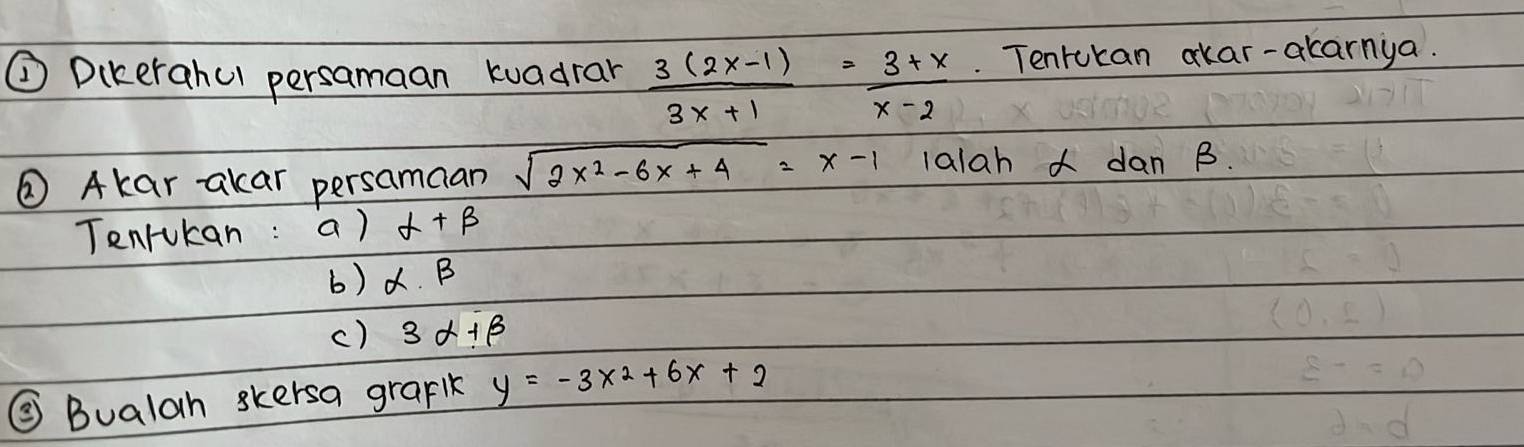 ① Diketahui persamaan kuadrat 3(2x-1)/3x+1 = 3+x/x-2. Tentukan akar-akarnya.
② Akar-akar persamaan √2x²-6x+4 = x-1 ialah α dan β.
Tentukan : a) α+β
b) α.β
c) 3α+β
③ Bualah sketsa grafik y = -3x²+6x+2